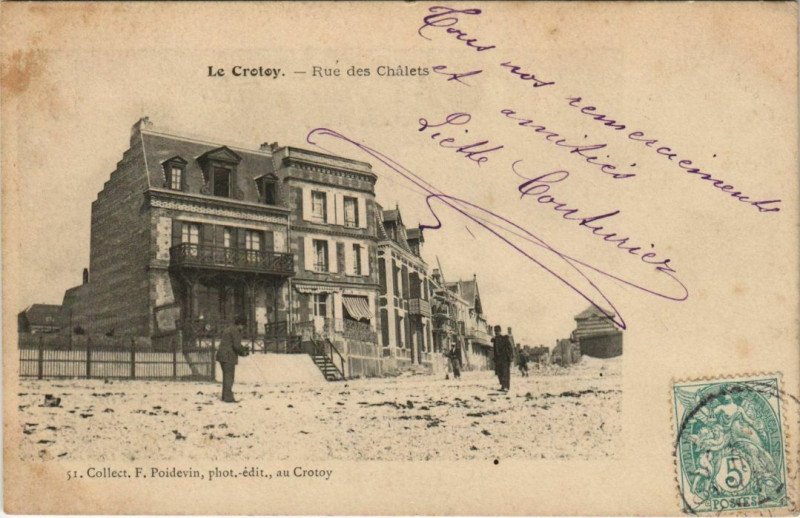 Le Crotoy. — Rue des Châlets
Tous nos remerciements
et amitiés
Liette Couturier
51. Collect. F. Poidevin, phot.-édit., au Crotoy
5c
POSTES